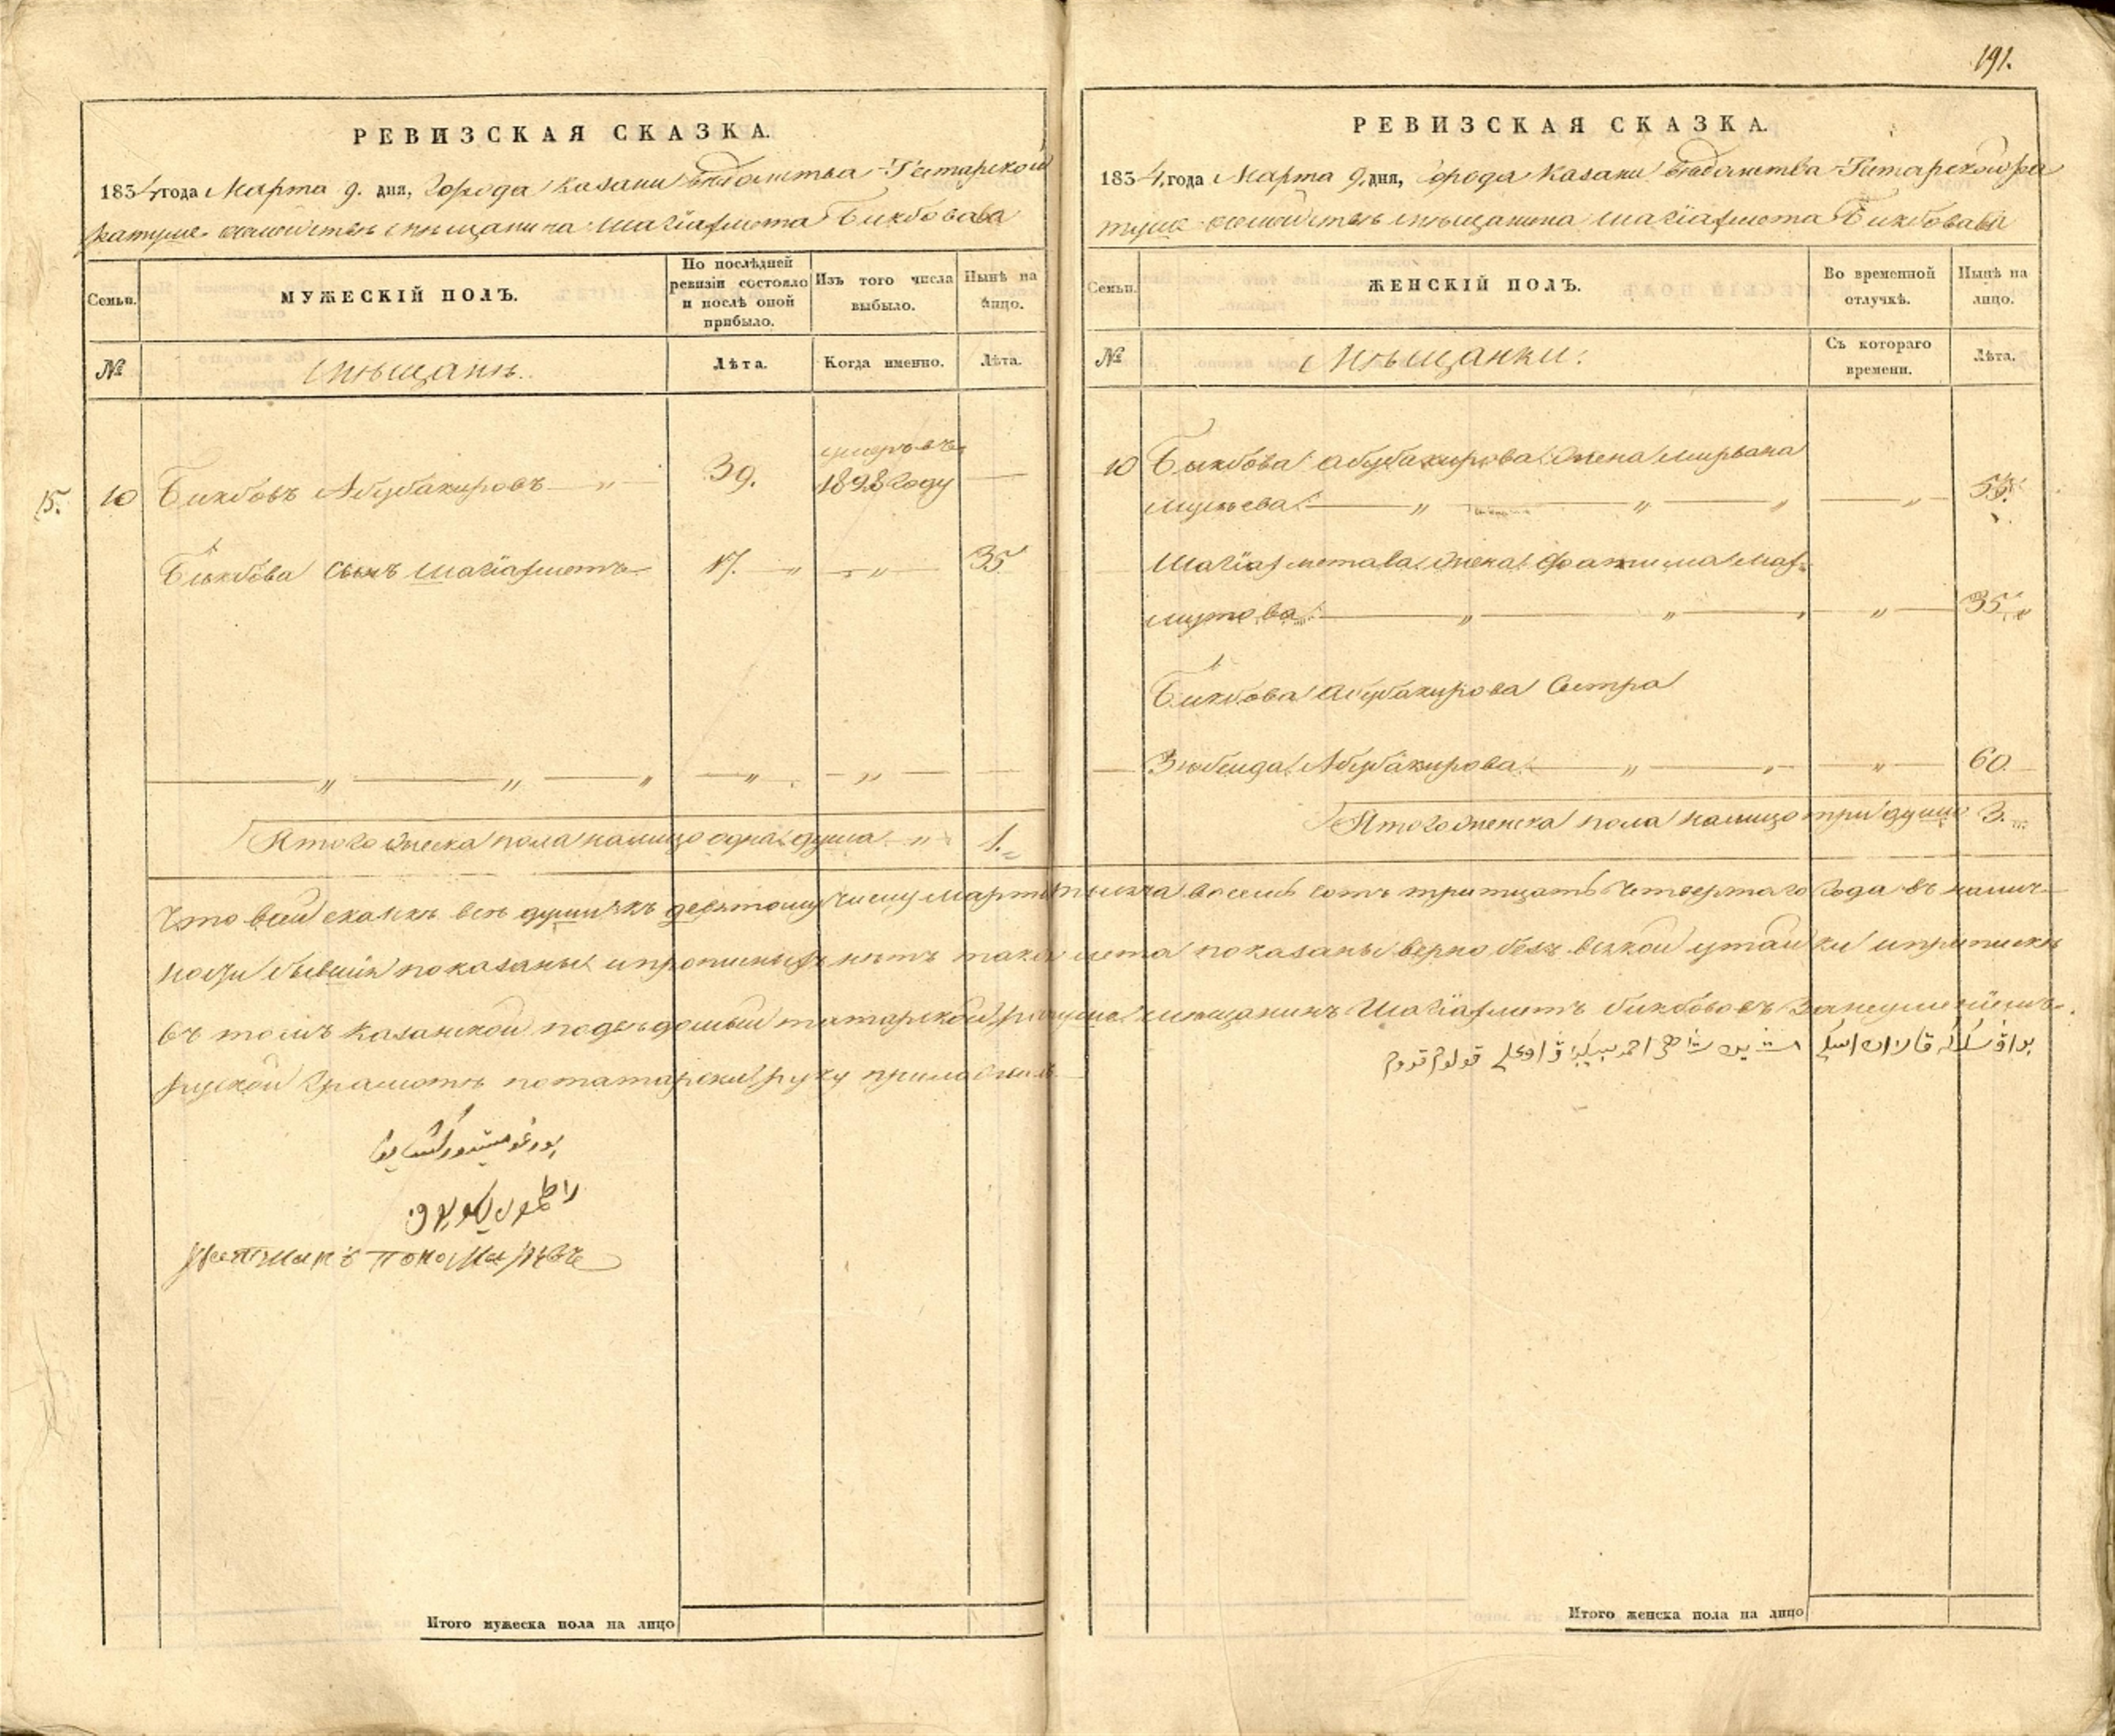 191.
РЕВИЗСКАЯ СКАЗКА.
1834 года Марта 9. дня, города Казани ведомства Татарской
ратуши семейства мещанина Шагіахмета Бикбовава
Семьи.
МУЖЕСКІЙ ПОЛЪ.
По послѣдней ревизіи состояло и послѣ оной прибыло.
Изъ того числа выбыло.
Нынѣ на лицо.
№
мѣщанѣ.
Лѣта.
Когда именно.
Лѣта.
умеръ въ
15. 10 Бикбовъ Абубакировъ 39. 1828 году
Бикбова сынъ Шагіахметъ 17. 35
Итого мужеска пола налицо одна душа 1.
РЕВИЗСКАЯ СКАЗКА.
1834 года Марта 9. дня, города Казани ведомства Татарской ра
туши семейства мѣщанина Шагіахмета Бикбовава
Семьи.
ЖЕНСКІЙ ПОЛЪ.
Во временной отлучкѣ.
Нынѣ на лицо.
№
Мѣщанки.
Съ котораго времени.
Лѣта.
10 Бикбова Абубакирова жена
55.
Шагіахметава жена Фатима Мах
мутова 35
Бикбова Абубакирова Сестра
Зюбеида Абубакирова 60
Итого женска пола налицо три души 3.
Что в сей сказкѣ всѣ души къ девятому числу марта тысяча восемь сотъ тритцать четвертаго года въ налич
ности бывшія показаны и прописныхъ нѣтъ така лета показаны верно безъ всякой утайки и приписки
въ томъ Казанской татарской ратуши мещанинъ Шагіахметъ Бикбововъ За неумениемъ
руской грамотѣ потатарски руку приложилъ
Итого мужеска пола на лицо
Итого женска пола на лицо